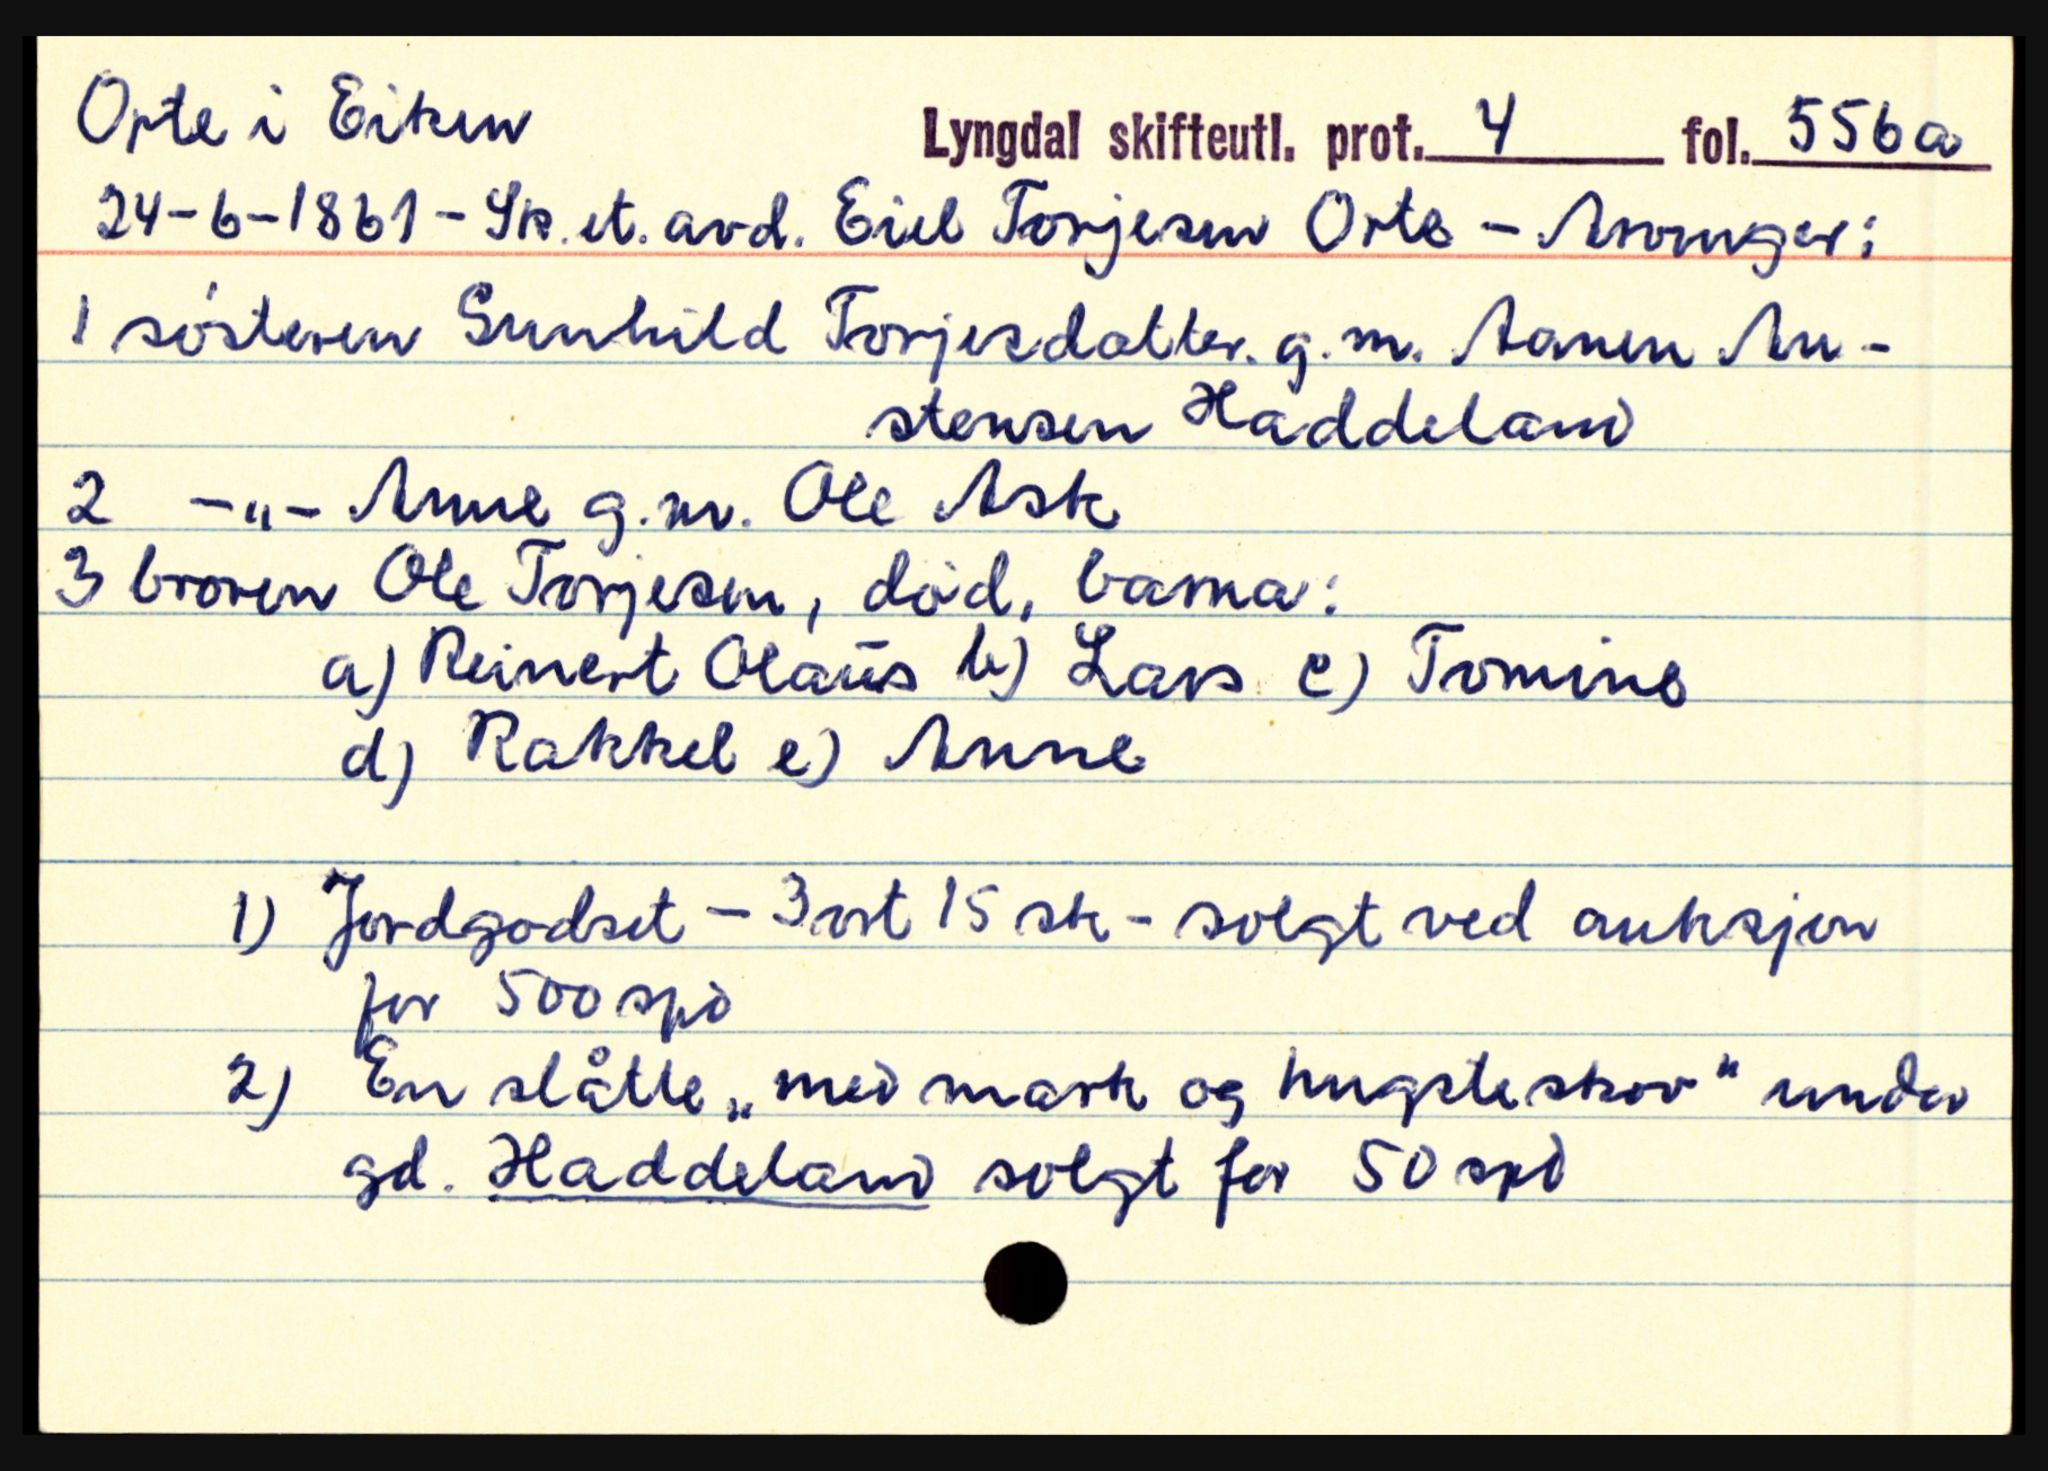 Orte i Eiken
Lyngdal skifteutl. prot. 4 fol. 556a
24-6-1861 - Sk. et. avd. Eiel Torjesen Orte - Arvinger:
1 søsteren Gunhild Torjesdatter. g. m. Aanen An-
stensen Haddeland
2 -"- Anne g. m. Ole Ask
3 broren Ole Torjesen, død, barna:
a) Reinert Olaus b) Lars c) Tomine
d) Rakkel e) Anne
1) Jordgodset - 3 ort 15 sk - solgt ved auksjon
for 500 spd
2) En slåtte „med mark og hugsteskov" under
gd. Haddeland solgt for 50 spd